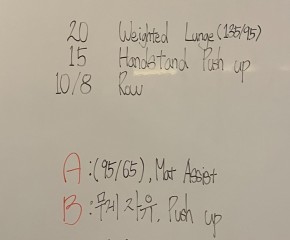 20 Weighted Lunge (135/95)
15 Handstand Push up
10/8 Row
A: (95/65), Mat Assist
B: 무게 자유, Push up